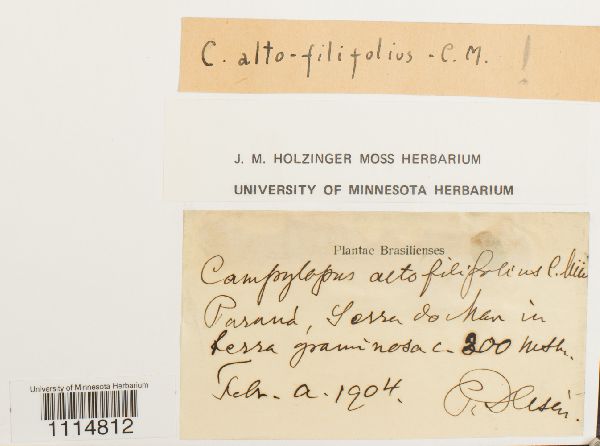 C. alto-filifolius - C. M. !
J. M. HOLZINGER MOSS HERBARIUM
UNIVERSITY OF MINNESOTA HERBARIUM
Plantae Brasilienses
Campylopus alto filifolius C. Müll
Paraná, Serra do Mar in
terra graminosa c. 200 metr.
Febr. a. 1904.
University of Minnesota Herbarium
1114812